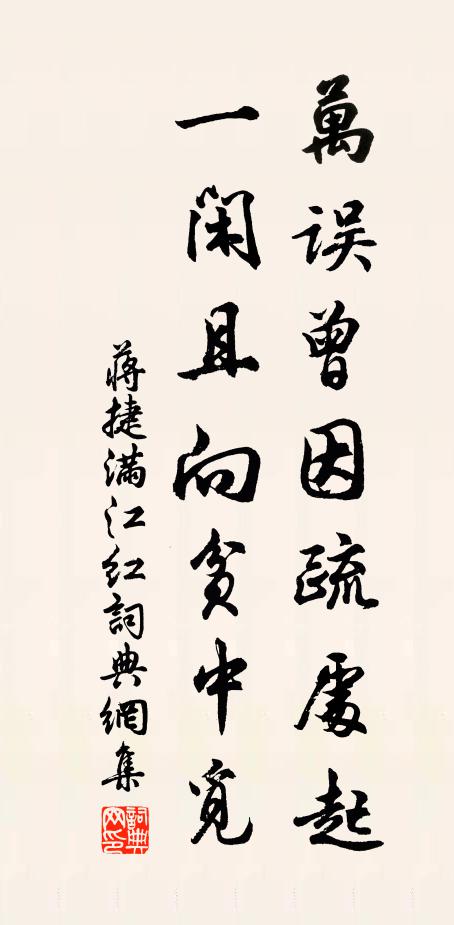 萬誤曾因疏處起
一閑且向貧中覓
蔣捷滿江紅詞典網集
詞典網印